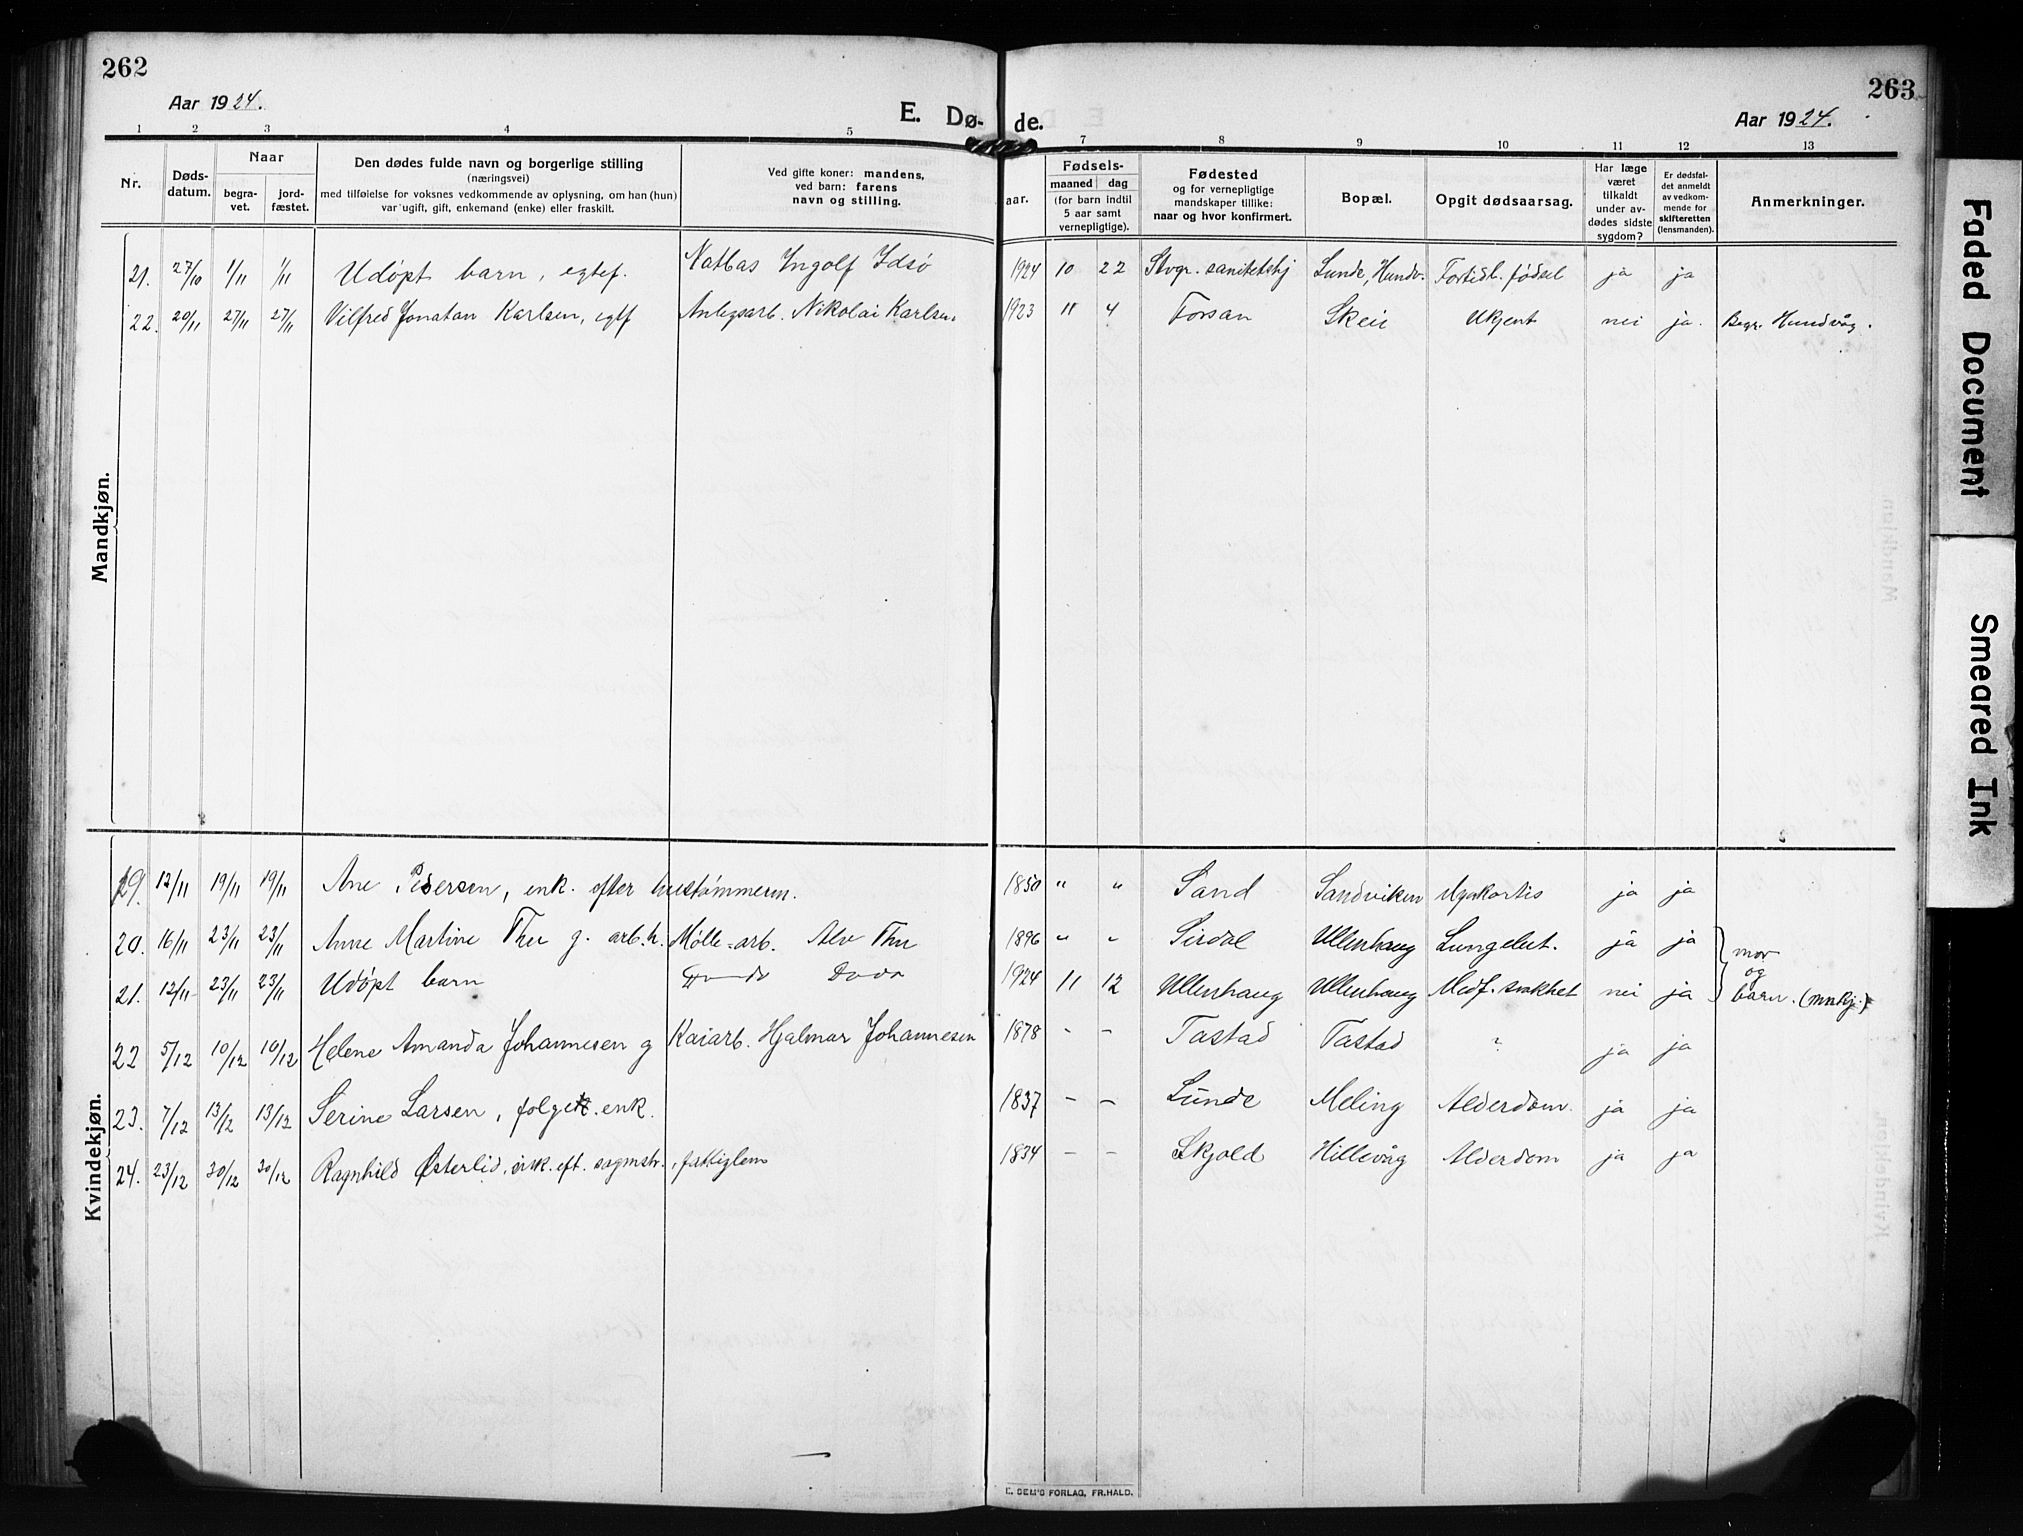 262
263
Aar 1924.
E. Dø-
de.
Aar 1924.
1 2 3 4 5 7 8 9 10 11 12 13
Nr.
Døds-
datum.
Naar
begra-
vet.
jord-
fæstet.
Den dødes fulde navn og borgerlige stilling
(næringsvei)
med tilføielse for voksnes vedkommende av oplysning, om han (hun)
var ugift, gift, enkemand (enke) eller fraskilt.
Ved gifte koner: mandens,
ved barn: farens
navn og stilling.
aar.
Fødsels-
maaned dag
(for barn indtil
5 aar samt
vernepligtige).
Fødested
og for vernepligtige
mandskaper tillike:
naar og hvor konfirmert.
Bopæl.
Opgit dødsaarsag.
Har læge
været
tilkaldt
under av-
dødes sidste
sygdom?
Er dødsfal-
det anmeldt
av vedkom-
mende for
skifteretten
(lensmanden).
Anmerkninger.
Mandkjøn.
21. 27/10 1/11 1/11 Udøpt barn, egtef. Ingolf Idsø 1924 10 22 Stvgr. sanitetshj Lunde, Hundv. Fortidl. fødsel ja ja
22. 20/11 27/11 27/11 Vilfred Jonatan Karlsen, egtf Anlegsarb. Nikolai Karlsen. 1923 11 4 Forsan Skeie Ukjent nei ja. Begr. Hundvåg.
Kvindekjøn.
19. 12/11 19/11 19/11 Ane Pedersen, enk. efter hustømmerm. 1850 " " Sand Sandviken Myokortis ja ja
20. 16/11 23/11 23/11 Anne Martine Thu g. arb.h. Mølle-arb. Alv Thu 1896 " " Sirdal Ullenhaug Lungebet. ja ja
21. 12/11 23/11 23/11 Udøpt barn 1924 11 12 Ullenhaug Ullenhaug Medf. svakhet nei ja
mor
og
barn. (mnkj.)
22 5/12 10/12 10/12 Helene Amanda Johannesen g Kaiarb. Hjalmar Johannesen 1878 - - Tastad Tastad ? ja ja
23. 7/12 13/12 13/12 Serine Larsen, enk. 1837 - - Lunde Meling Alderdom. ja ja
24. 23/12 30/12 30/12 Ragnhild Østerlid, enk. eft. sagmstr., fattiglem 1834 - - Skjold Hillevåg Alderdom ja ja
E. SEM'S FORLAG, FR.HALD.
Faded Document
Smeared Ink